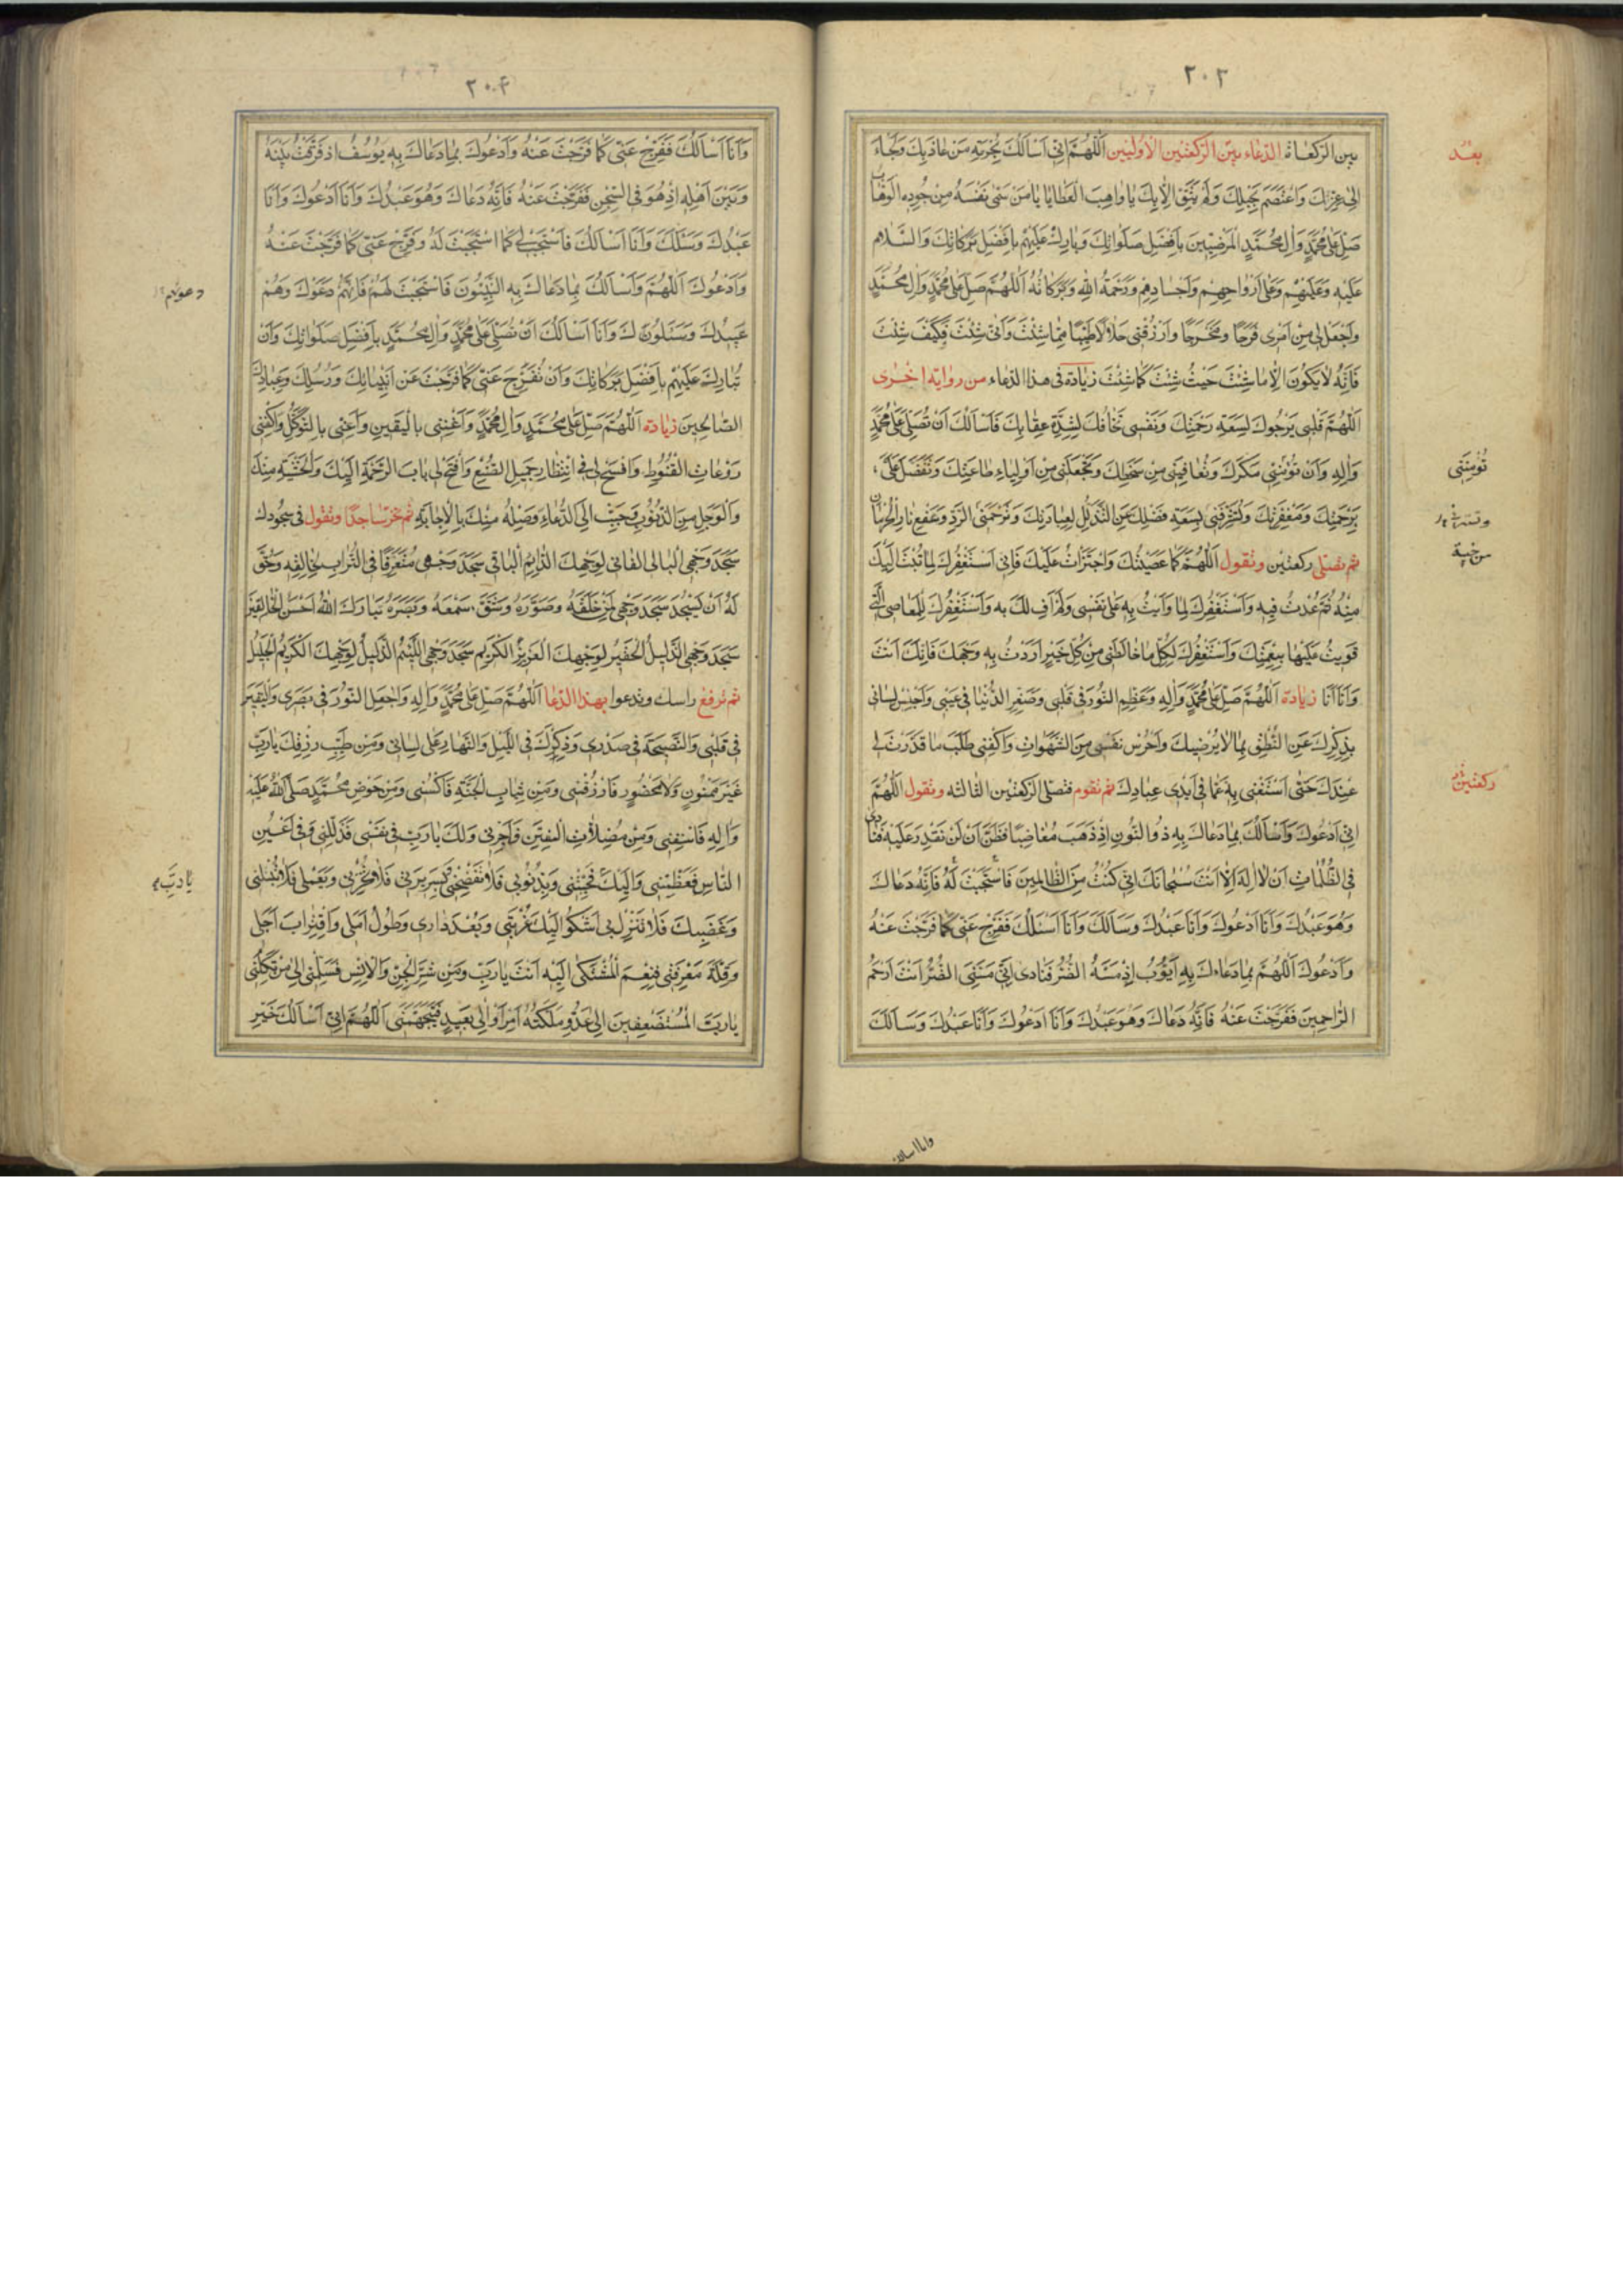 ٢٠٣
بين الركعات الدعاء بين الركعتين الاوليين اَللّٰهُمَّ اِنّى اَسْأَلُكَ بِحُرْمَةِ مَنْ عاذَ بِكَ وَلَجَأَ
بعد
اِلى عِزِّكَ وَاعْتَصَمَ بِحَبْلِكَ وَلَمْ يَثِقْ اِلّا بِكَ يا واهِبَ الْعَطايا يا مَنْ سَمّى نَفْسَهُ مِنْ جُودِهِ الْوَهّابَ
صَلِّ عَلى مُحَمَّدٍ وَالِ مُحَمَّدٍ الْمَرْضِيّينَ بِاَفْضَلِ صَلَواتِكَ وَبارِكْ عَلَيْهِمْ بِاَفْضَلِ بَرَكاتِكَ وَالسَّلام
عَلَيْهِ وَعَلَيْهِمْ وَعَلى اَرْواحِهِمْ وَاَجْسادِهِمْ وَرَحْمَةُ اللهِ وَبَرَكاتُهُ اَللّٰهُمَّ صَلِّ عَلى مُحَمَّدٍ وَالِ مُحَمَّدٍ
وَاجْعَلْ لى مِنْ اَمْرى فَرَجًا وَمَخْرَجًا وَارْزُقْنى حَلالًا طَيِّبًا مِمّا شِئْتَ وَاَنّى شِئْتَ وَكَيْفَ شِئْتَ
فَاِنَّهُ لا يَكُونُ اِلّا ما شِئْتَ حَيْثُ شِئْتَ كَما شِئْتَ زيادة فى هذا الدعاء من رواية اخرى
اَللّٰهُمَّ قَلْبى يَرْجُوكَ لِسَعَةِ رَحْمَتِكَ وَنَفْسى تَخافُكَ لِشِدَّةِ عِقابِكَ فَاَسْأَلُكَ اَنْ تُصَلِّىَ عَلى مُحَمَّدٍ
وَالِهِ وَاَنْ تُؤْمِنّى مَكْرَكَ وَتُعافِيَنى مِنْ سَخَطِكَ وَتَجْعَلَنى مِنْ اَوْلِياءِ طاعَتِكَ وَتَفَضَّلَ عَلَىَّ
تُؤْمِنَنى
بِرَحْمَتِكَ وَمَغْفِرَتِكَ وَتُشَرِّفَنى بِسَعَةِ فَضْلِكَ عَنِ التَّذَلُّلِ لِعِبادِكَ وَتَرْحَمَنى مِنْ خَيْبَةِ الرَّدِّ وَسَفْعِ نارِ الْحِرْمانِ
ثم تصلى ركعتين وتقول اَللّٰهُمَّ كَما عَصَيْتُكَ وَاجْتَرَأْتُ عَلَيْكَ فَاِنّى اَسْتَغْفِرُكَ لِما تُبْتُ اِلَيْكَ
مِنْهُ ثُمَّ عُدْتُ فيهِ وَاَسْتَغْفِرُكَ لِما وَأَيْتُ بِهِ عَلى نَفْسى وَلَمْ اَفِ لَكَ بِهِ وَاَسْتَغْفِرُكَ لِلْمَعاصِى الَّتى
قَوِيتُ عَلَيْها بِنِعْمَتِكَ وَاَسْتَغْفِرُكَ لِكُلِّ ما خالَطَنى مِنْ كُلِّ خَيْرٍ اَرَدْتُ بِهِ وَجْهَكَ فَاِنَّكَ اَنْتَ
وَاَنَا اَنَا زيادة اَللّٰهُمَّ صَلِّ عَلى مُحَمَّدٍ وَالِهِ وَعَظِّمِ النُّورَ فى قَلْبى وَصَغِّرِ الدُّنْيا فى عَيْنى وَاحْبِسْ لِسانى
بِذِكْرِكَ عَنِ النُّطْقِ بِما لا يُرْضيكَ وَاحْرُسْ نَفْسى مِنَ الشَّهَواتِ وَاكْفِنى طَلَبَ ما قَدَّرْتَ لى
عِنْدَكَ حَتّى اَسْتَغْنِىَ بِهِ عَمّا فى اَيْدى عِبادِكَ ثم تقوم فتصلى الركعتين الثالثة وتقول اَللّٰهُمَّ
ركعتين
اِنّى اَدْعُوكَ وَاَسْأَلُكَ بِما دَعاكَ بِهِ ذُو النُّونِ اِذْ ذَهَبَ مُغاضِبًا فَظَنَّ اَنْ لَنْ نَقْدِرَ عَلَيْهِ فَنادى
فِى الظُّلُماتِ اَنْ لا اِلهَ اِلّا اَنْتَ سُبْحانَكَ اِنّى كُنْتُ مِنَ الظّالِمينَ فَاسْتَجَبْتَ لَهُ فَاِنَّهُ دَعاكَ
وَهُوَ عَبْدُكَ وَاَنَا اَدْعُوكَ وَاَنَا عَبْدُكَ وَسَأَلَكَ وَاَنَا اَسْئَلُكَ فَفَرِّجْ عَنّى كَما فَرَّجْتَ عَنْهُ
وَاَدْعُوكَ اَللّٰهُمَّ بِما دَعاكَ بِهِ اَيُّوبُ اِذْ مَسَّهُ الضُّرُّ فَنادى اَنّى مَسَّنِىَ الضُّرُّ وَاَنْتَ اَرْحَمُ
الرّاحِمينَ فَفَرَّجْتَ عَنْهُ فَاِنَّهُ دَعاكَ وَهُوَ عَبْدُكَ وَاَنَا اَدْعُوكَ وَاَنَا عَبْدُكَ وَسَأَلَكَ
وانا اسالك
٢٠٤
وَاَنَا اَسْأَلُكَ فَفَرِّجْ عَنّى كَما فَرَّجْتَ عَنْهُ وَاَدْعُوكَ بِما دَعاكَ بِهِ يُوسُفُ اِذْ فَرَّقْتَ بَيْنَهُ
وَبَيْنَ اَهْلِهِ اِذْ هُوَ فِى السِّجْنِ فَفَرَّجْتَ عَنْهُ فَاِنَّهُ دَعاكَ وَهُوَ عَبْدُكَ وَاَنَا اَدْعُوكَ وَاَنَا
عَبْدُكَ وَسَئَلَكَ وَاَنَا اَسْأَلُكَ فَاسْتَجِبْ لى كَما اسْتَجَبْتَ لَهُ وَفَرِّجْ عَنّى كَما فَرَّجْتَ عَنْهُ
وَاَدْعُوكَ اَللّٰهُمَّ وَاَسْأَلُكَ بِما دَعاكَ بِهِ النَّبِيُّونَ فَاسْتَجَبْتَ لَهُمْ فَاِنَّهُمْ دَعَوْكَ وَهُمْ
عَبيدُكَ وَسَئَلُوكَ وَاَنَا اَسْأَلُكَ اَنْ تُصَلِّىَ عَلى مُحَمَّدٍ وَالِ مُحَمَّدٍ بِاَفْضَلِ صَلَواتِكَ وَاَنْ
تُبارِكَ عَلَيْهِمْ بِاَفْضَلِ بَرَكاتِكَ وَاَنْ تُفَرِّجَ عَنّى كَما فَرَّجْتَ عَنْ اَنْبِيائِكَ وَرُسُلِكَ وَعِبادِكَ
الصّالِحينَ زيادة اَللّٰهُمَّ صَلِّ عَلى مُحَمَّدٍ وَالِ مُحَمَّدٍ وَاَغْنِنى بِالْيَقينِ وَاَعِنّى بِالتَّوَكُّلِ وَاكْفِنى
رَوْعاتِ الْقُنُوطِ وَافْسَحْ لى فِى انْتِظارِ جَميلِ الصُّنْعِ وَافْتَحْ لى بابَ الرَّحْمَةِ اِلَيْكَ وَالْخَشْيَةِ مِنْكَ
وَالْوَجَلِ مِنَ الذُّنُوبِ وَحَبِّبْ اِلَىَّ الدُّعاءَ وَصِلْهُ مِنْكَ بِالْاِجابَةِ ثم تخر ساجدا وتقول فى سجودك
سَجَدَ وَجْهِىَ الْبالِى الْفانى لِوَجْهِكَ الدّائِمِ الْباقى سَجَدَ وَجْهى مُتَعَفِّرًا فِى التُّرابِ لِخالِقِهِ وَحَقَّ
لَهُ اَنْ يَسْجُدَ سَجَدَ وَجْهى لِمَنْ خَلَقَهُ وَصَوَّرَهُ وَشَقَّ سَمْعَهُ وَبَصَرَهُ تَبارَكَ اللهُ اَحْسَنُ الْخالِقينَ
سَجَدَ وَجْهِىَ الذَّليلُ الْحَقيرُ لِوَجْهِكَ الْعَزيزِ الْكَريمِ سَجَدَ وَجْهِىَ اللَّئيمُ الذَّليلُ لِوَجْهِكَ الْكَريمِ الْجَليلِ
ثم ترفع راسك وتدعوا بهذا الدعا اَللّٰهُمَّ صَلِّ عَلى مُحَمَّدٍ وَالِهِ وَاجْعَلِ النُّورَ فى بَصَرى وَالْيَقينَ
فى قَلْبى وَالنَّصيحَةَ فى صَدْرى وَذِكْرَكَ فِى اللَّيْلِ وَالنَّهارِ عَلى لِسانى وَمِنْ طَيِّبِ رِزْقِكَ يا رَبِّ
غَيْرَ مَمْنُونٍ وَلا مَحْظُورٍ فَارْزُقْنى وَمِنْ ثِيابِ الْجَنَّةِ فَاكْسُنى وَمِنْ حَوْضِ مُحَمَّدٍ صَلَّى اللهُ عَلَيْهِ
وَالِهِ فَاسْقِنى وَمِنْ مُضِلّاتِ الْفِتَنِ فَاَجِرْنى وَلَكَ يا رَبِّ فى نَفْسى فَذَلِّلْنى وَفى اَعْيُنِ
النّاسِ فَعَظِّمْنى وَاِلَيْكَ فَحَبِّبْنى وَبِذُنُوبى فَلا تَفْضَحْنى وَبِسَريرَتى فَلا تُخْزِنى وَبِعَمَلى فَلا تُبْسِلْنى
يا رب
وَغَضَبِكَ فَلا تُنْزِلْ بى اَشْكُو اِلَيْكَ غُرْبَتى وَبُعْدَ دارى وَطُولَ اَمَلى وَاقْتِرابَ اَجَلى
وَقِلَّةَ مَعْرِفَتى فَنِعْمَ الْمُشْتَكى اِلَيْهِ اَنْتَ يا رَبِّ وَمِنْ شَرِّ الْجِنِّ وَالْاِنْسِ فَسَلِّمْنى اِلى مَنْ تَكِلُنى
يا رَبَّ الْمُسْتَضْعَفينَ اِلى عَدُوٍّ مَلَّكْتَهُ اَمْرى اَوْ اِلى بَعيدٍ فَيَتَجَهَّمَنى اَللّٰهُمَّ اِنّى اَسْأَلُكَ خَيْرَ